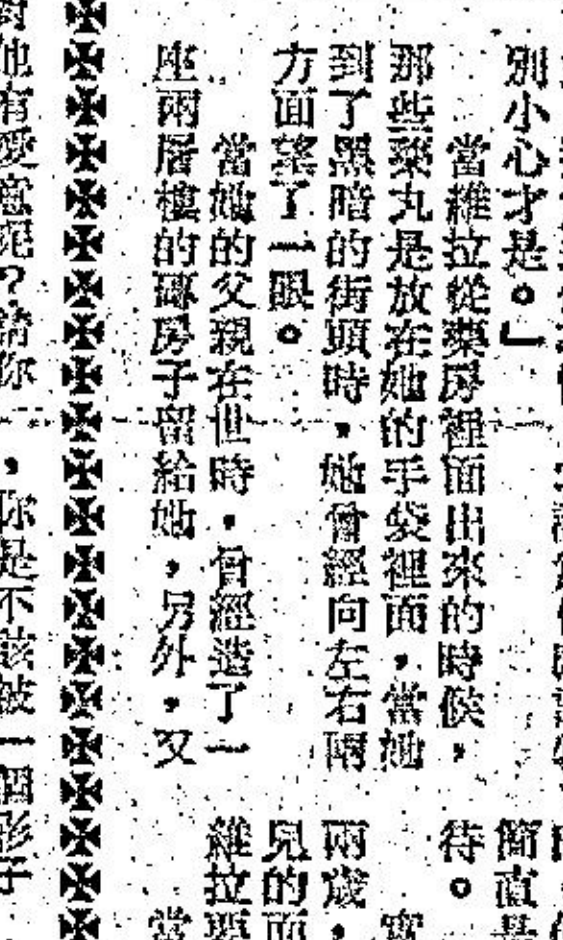 別小心才是。」
當維拉從藥房裡面出來的時候,
那些藥丸是放在她的手袋裡面,當她
到了黑暗的街頭時,她曾經向左右兩
方面望了一眼。
當她的父親在世時,曾經造了一
座兩層樓的磚房子留給她,另外,又
對他有愛意呢?請你
,你是不該被一個影子
簡直是
待。
兩歲,
兒的面
維拉要
當